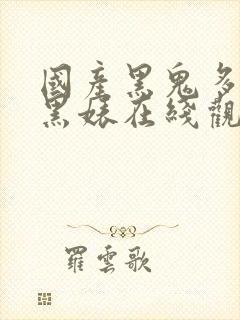 國產黑鬼多
黑婊在綫觀
羅雲歌